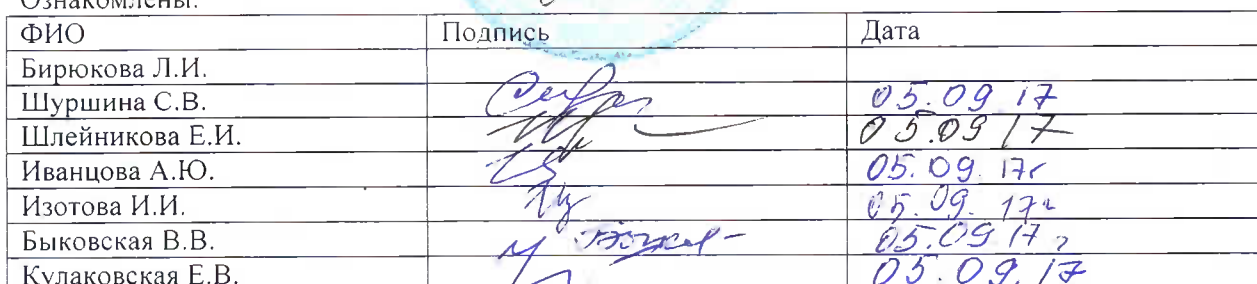 Ознакомлены:
ФИО Подпись Дата
Бирюкова Л.И.
Шуршина С.В. 05.09 17
Шлейникова Е.И. 05.09 17
Иванцова А.Ю. 05.09. 17г
Изотова И.И. 05.09. 17г
Быковская В.В. 05.09 17г
Кулаковская Е.В. 05.09.17